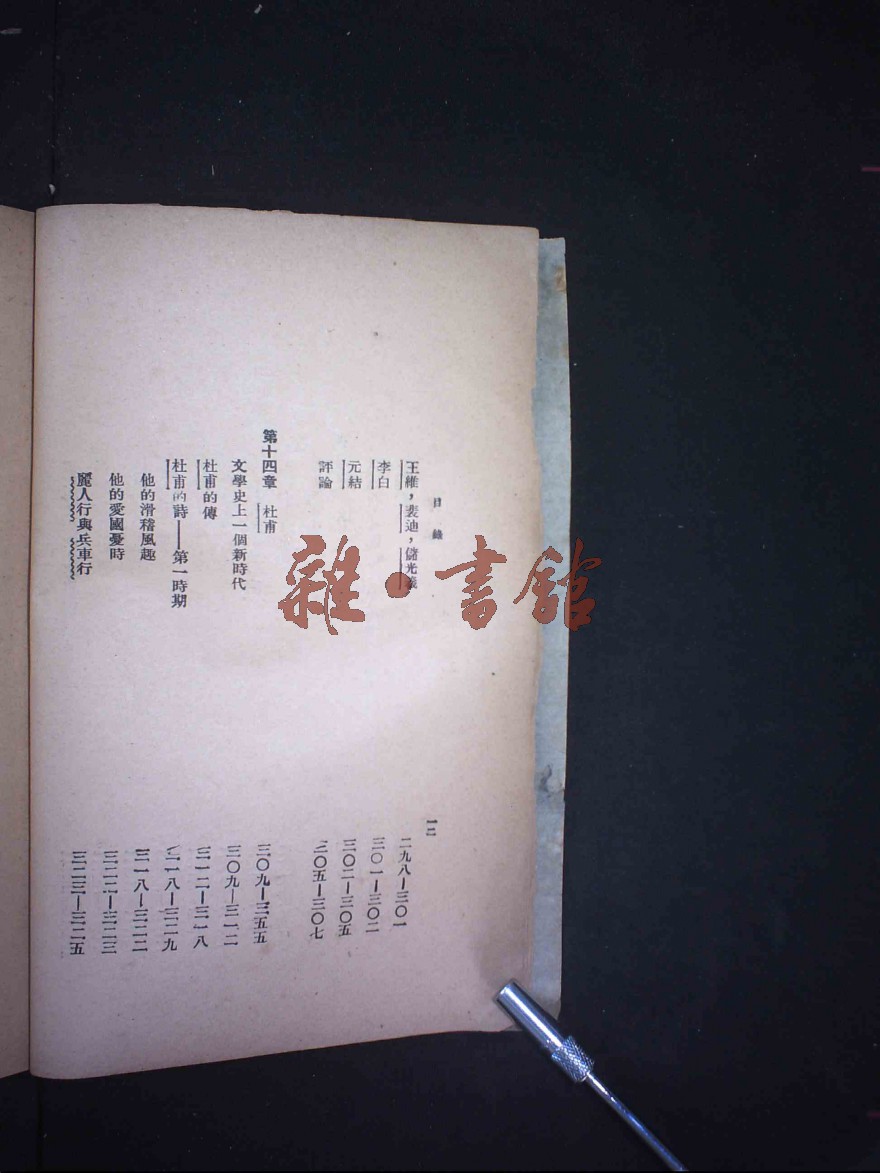 目錄 一二
王維，裴迪，儲光羲 二九八—三〇一
李白 三〇一—三〇二
元結 三〇二—三〇五
評論 三〇五—三〇七
第十四章 杜甫 三〇九—三五五
文學史上一個新時代 三〇九—三一二
杜甫的傳 三一二—三一八
杜甫的詩——第一時期 三一八—三二九
他的滑稽風趣 三一八—三二二
他的愛國憂時 三二二—三二三
麗人行與兵車行 三二三—三二五
雜·書館